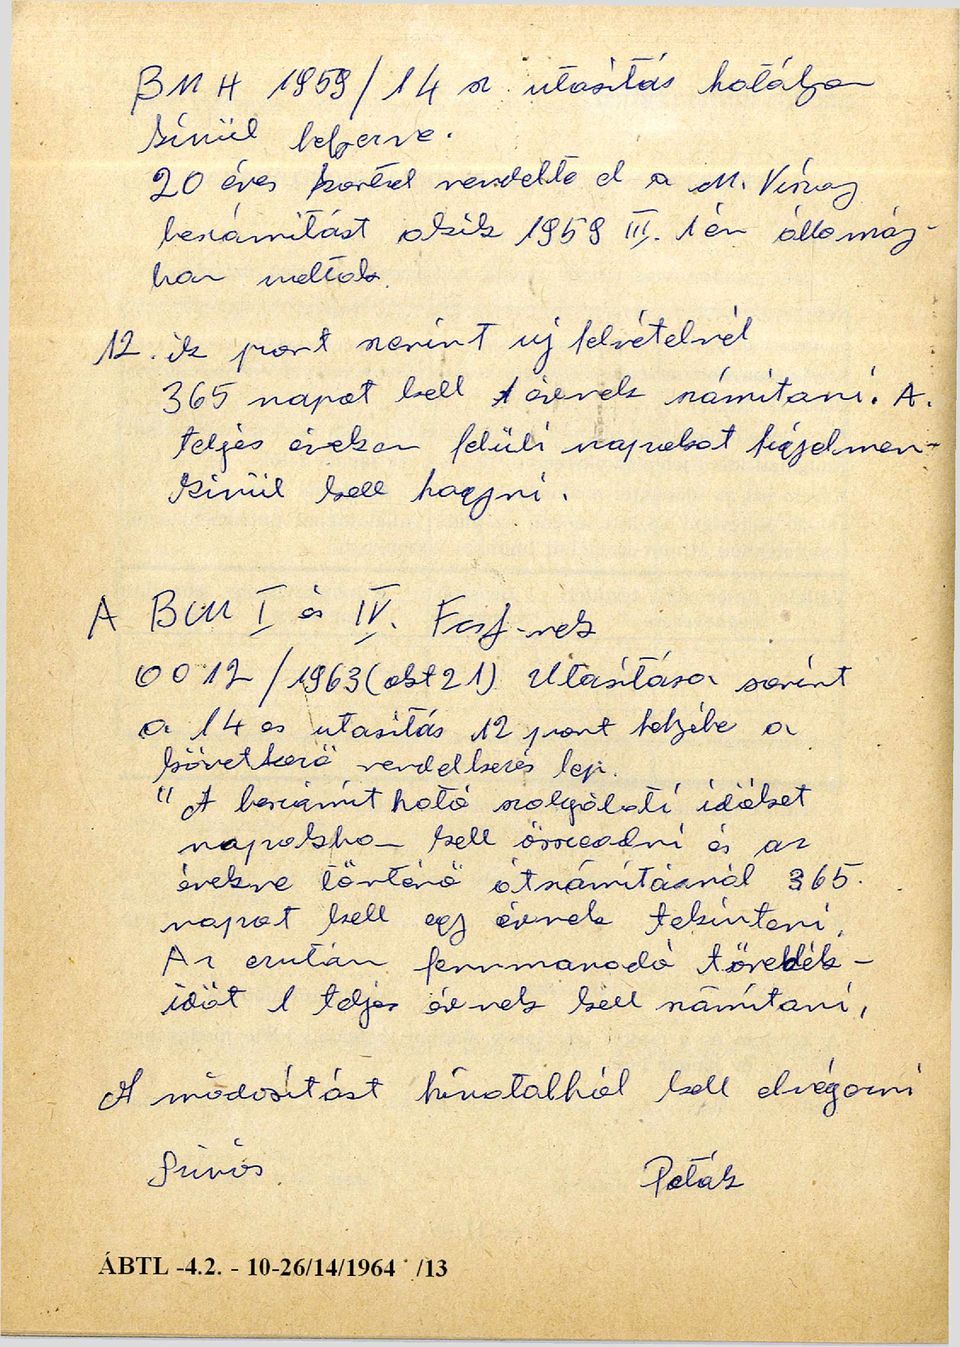 BMH 1959/14 sz utasitás hatályon
kívül helyezve.
20 éves kortol rendelte el a M. Viszony
beszámítást akik 1959 III. 1 én állomány-
ban voltak.
12. ik pont szerint uj felvételnél
365 napot kell 1 évnek számítani. A.
teljes éveken felüli napokat figyelmen-
kívül kell hagyni.
A BM I és IV. Fcsf-nek
0012/1963 (okt 21) Utasítása szerint
a 14 es utasitás 12 pont helyébe a
következö rendelkezés lep.
"A beszámít ható szolgálati időket
napokban kell összeadni és az
évekre történö átszámításnál 365.
napot kell egy évnek tekinteni.
Az ezután fennmaradó töredék-
időt 1 teljes évnek kell számítani,
A módosítást hivatalból kell elvégezni
Szivós Paták
ÁBTL -4.2. - 10-26/14/1964 /13